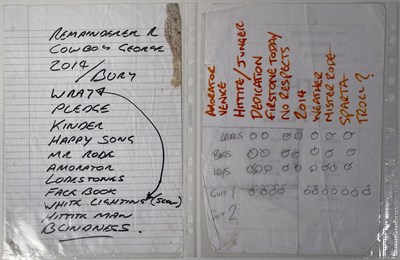 REMAINDERER R
COWBOY GEORGE
2014
/BURY
WRAY
PLEDGE
KINDER
HAPPY SONG
MR RODE
AMORATOR
LODESTONES
FACEBOOK
WHITE LIGHTING (Scan)
HITTITE MAN
BLINDNESS.
AMORATOR
VENICE
HITTITE/JUNGER
DEDICATION
FIRST ONE TODAY
NO RESPECTS
2014
WEATHER
MISTER RODE
SPARTA
TROLL?
BASS
KEYS
GUIT 1
GUIT 2